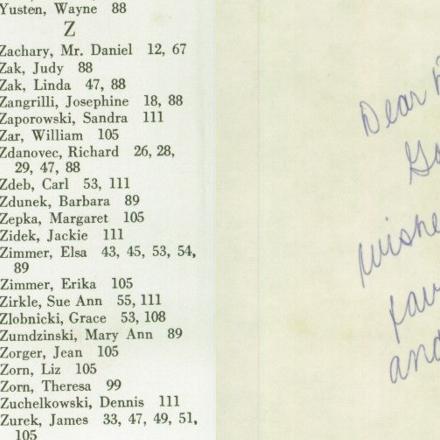 Yusten, Wayne 88
Z
Zachary, Mr. Daniel 12, 67
Zak, Judy 88
Zak, Linda 47, 88
Zangrilli, Josephine 18, 88
Zaporowski, Sandra 111
Zar, William 105
Zdanovec, Richard 26, 28,
29, 47, 88
Zdeb, Carl 53, 111
Zdunek, Barbara 89
Zepka, Margaret 105
Zidek, Jackie 111
Zimmer, Elsa 43, 45, 53, 54,
89
Zimmer, Erika 105
Zirkle, Sue Ann 55, 111
Zlobnicki, Grace 53, 108
Zumdzinski, Mary Ann 89
Zorger, Jean 105
Zorn, Liz 105
Zorn, Theresa 99
Zuchelkowski, Dennis 111
Zurek, James 33, 47, 49, 51,
105
Dear
wishe
and